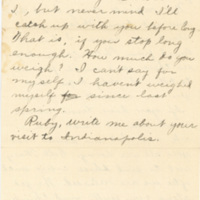 I, but never mind I'll
catch up with you before long
What is, if you stop long
enough. How much do you
weigh? I can't say for
myself. I havent weighed
myself for since last
spring.
Ruby, write me about your
visit to Indianapolis.